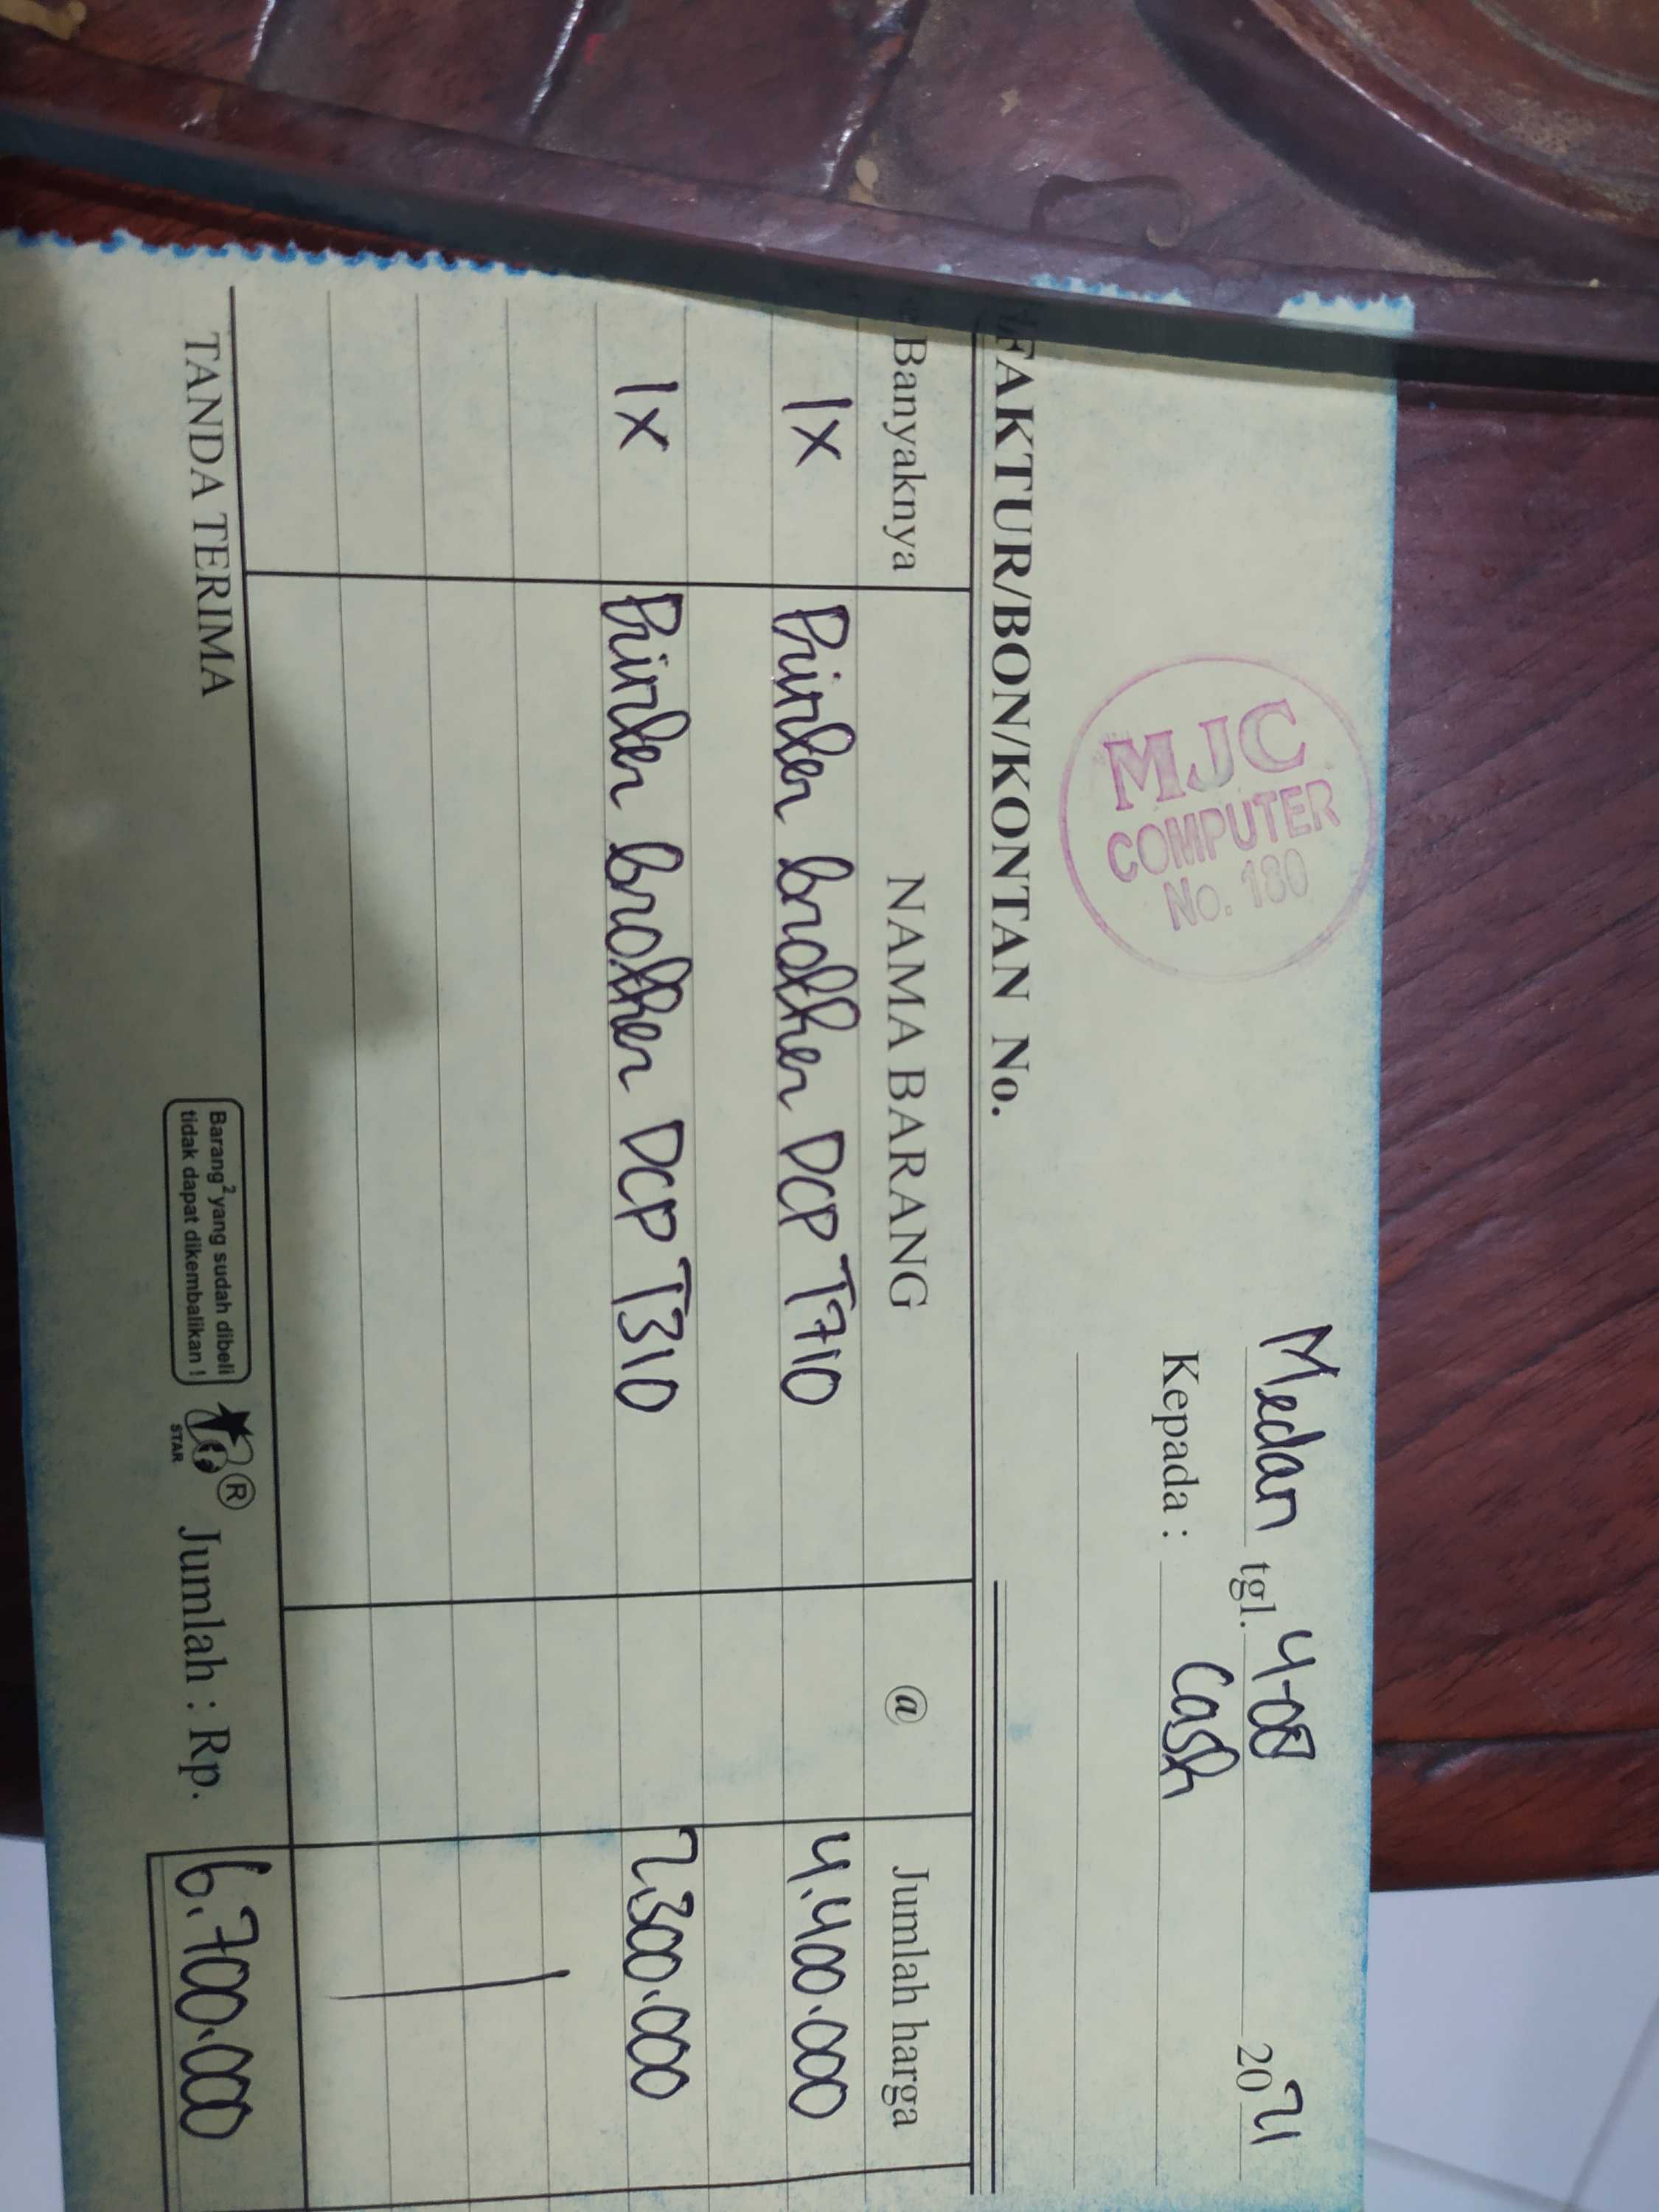 MJC
COMPUTER
No. 180
Medan tgl. 4-08 2021
Kepada : Cash
FAKTUR/BON/KONTAN No.
Banyaknya NAMA BARANG @ Jumlah harga
1x Printer brother DCP T710 4.400.000
1x Printer brother DCP T310 2.300.000
TANDA TERIMA
Barang² yang sudah dibeli
tidak dapat dikembalikan !
STAR
®
Jumlah : Rp. 6.700.000